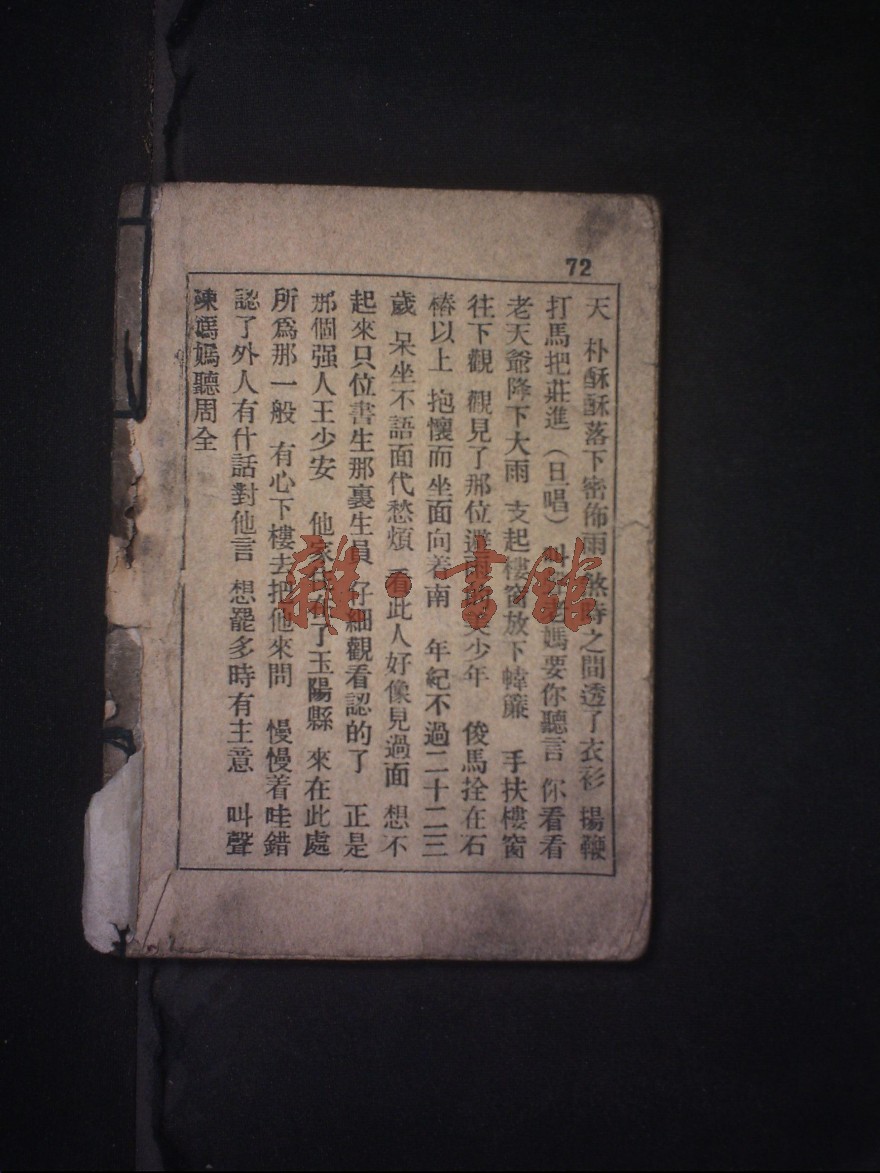 72
天 朴酥酥落下密佈雨 煞時之間透了衣衫 揚鞭
打馬把莊進（旦唱）叫 媽要你聽言 你看看
老天爺降下大雨 支起樓窗放下幃簾 手扶樓窗
往下觀 觀見了那位避雨 美少年 俊馬拴在石
樁以上 抱懷而坐面向着南 年紀不過二十二三
歲 呆坐不語面代愁煩 看此人好像見過面 想不
起來只位書生那裏生員 仔細觀看認的了 正是
那個强人王少安 他家住在了玉陽縣 來在此處
所爲那一般 有心下樓去把他來問 慢慢着哇錯
認了外人有什話對他言 想罷多時有主意 叫聲
陳媽媽聽周全
雜·書館